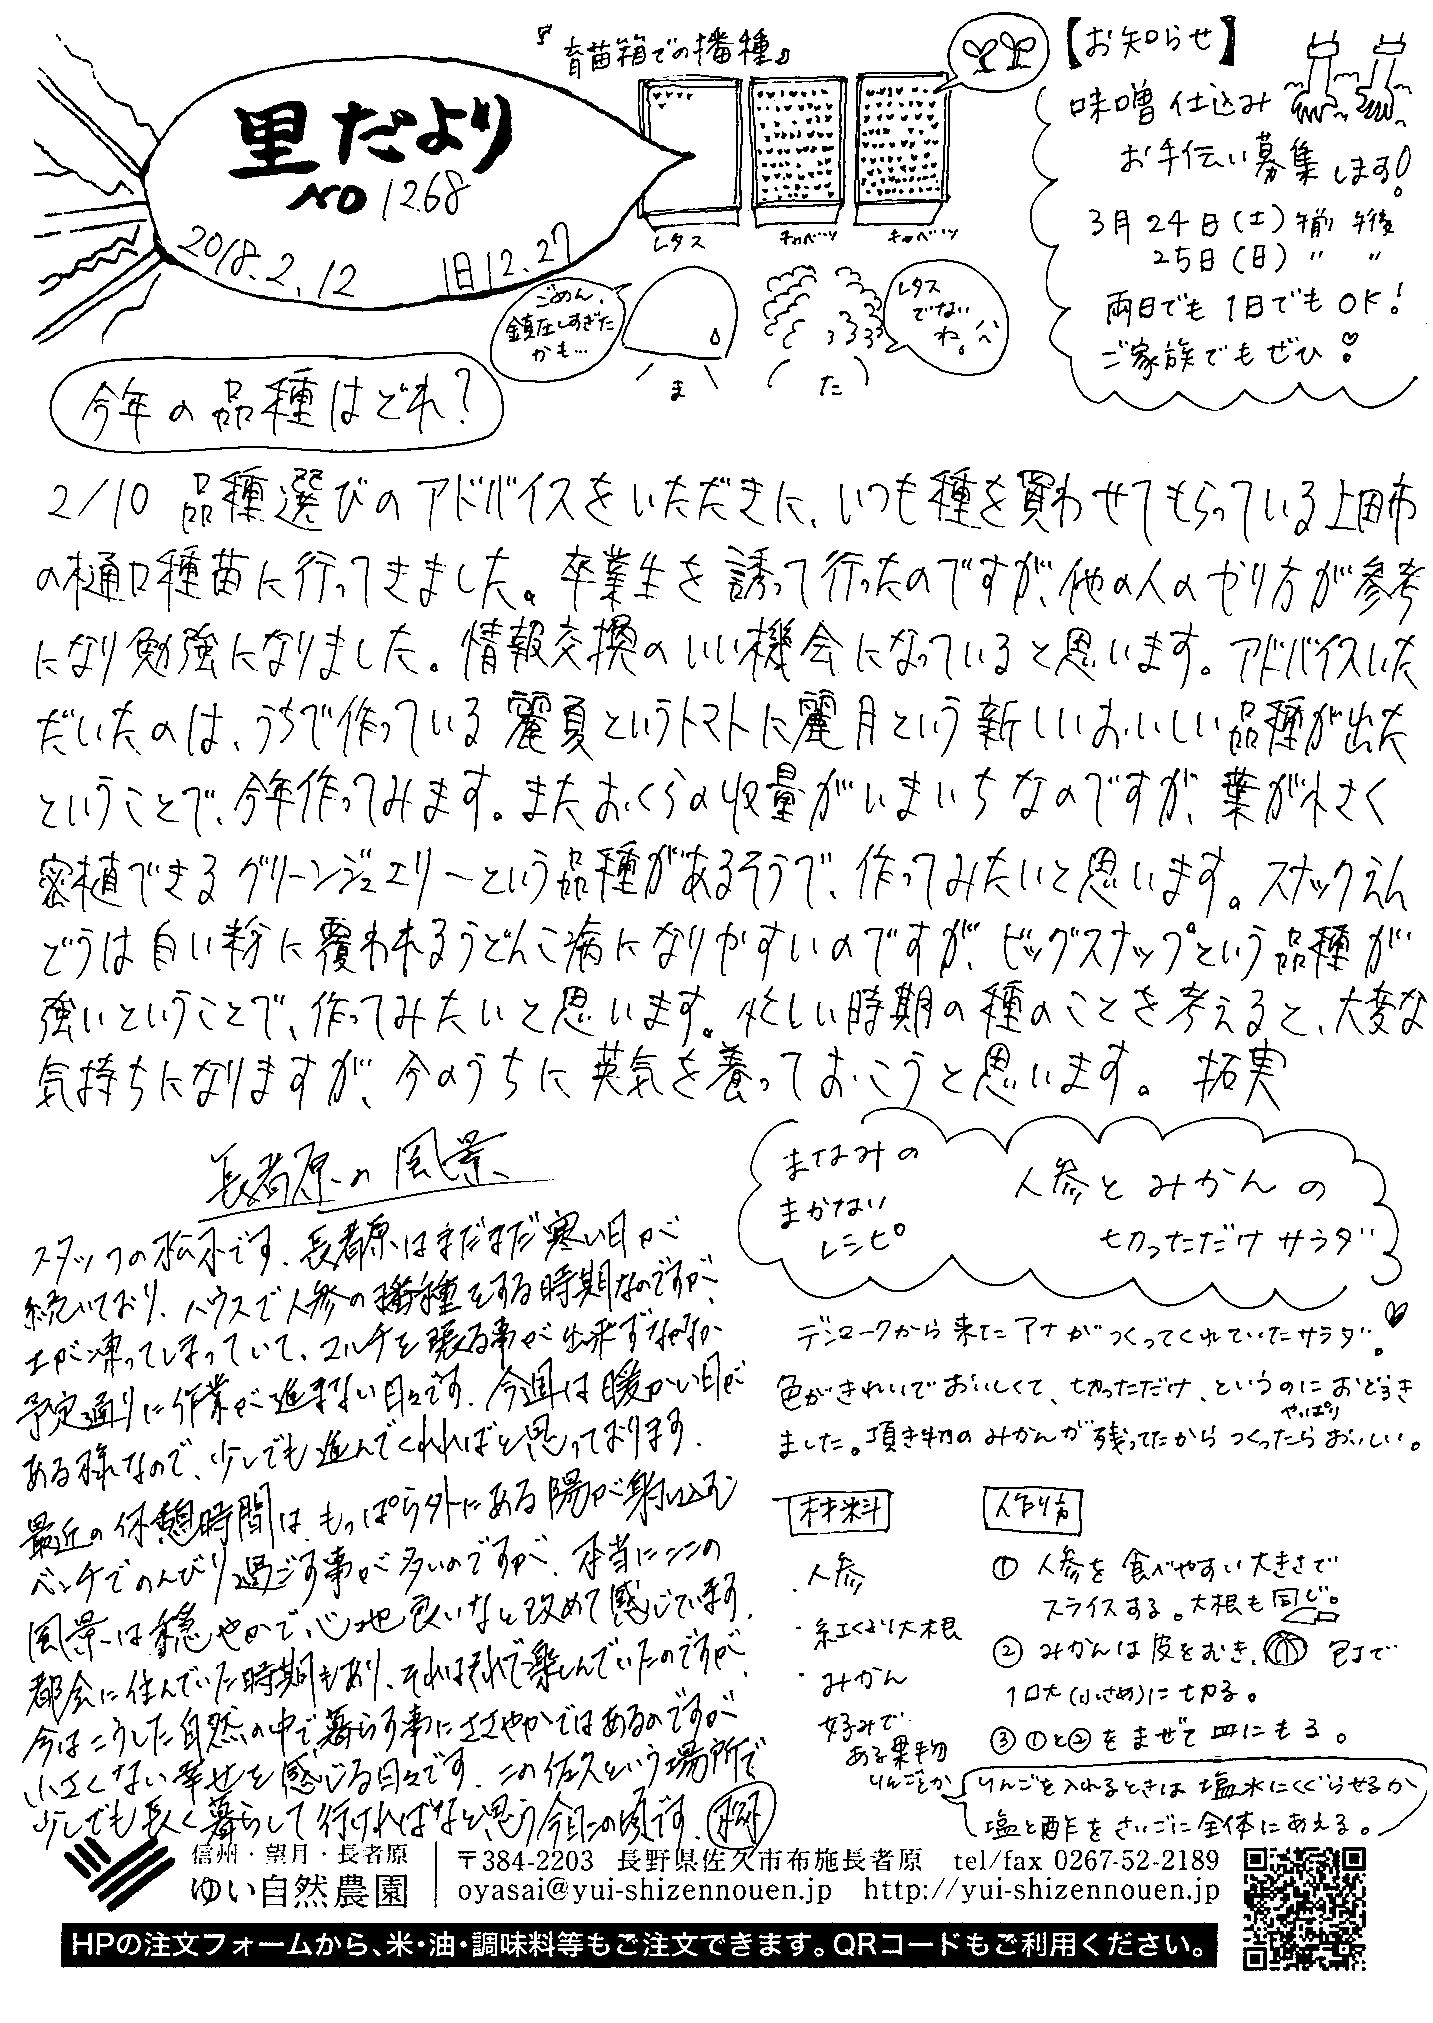 里だより
NO 1268
2018.2.12
旧12.27
『育苗箱での播種』
レタス
キャベツ
キャベツ
ごめん、
鎮圧しすぎた
かも…
ま
た
レタス
でない
ね。
【お知らせ】
味噌仕込み
お手伝い募集します!
3月24日(土)午前 午後
25日(日) 〃 〃
両日でも1日でもOK!
ご家族でもぜひ!
今年の品種はどれ?
2/10 品種選びのアドバイスをいただきに、いつも種を買わせてもらっている上田市
の樋口種苗に行ってきました。卒業生を誘って行ったのですが、他の人のやり方が参考
になり勉強になりました。情報交換のいい機会になっていると思います。アドバイスいた
だいたのは、うちで作っている麗夏というトマトに麗月という新しいおいしい品種が出た
ということで、今年作ってみます。またおくらの収量がいまいちなのですが、葉が小さく
密植できるグリーンジュエリーという品種があるそうで、作ってみたいと思います。スナックえん
どうは白い粉に覆われるうどんこ病になりやすいのですが、ビッグスナップという品種が
強いということで、作ってみたいと思います。忙しい時期の種のことを考えると、大変な
気持ちになりますが、今のうちに英気を養っておこうと思います。 拓実
長者原の風景
スタッフの松永です。長者原はまだまだ寒い日が
続いており、ハウスで人参の播種をする時期なのですが、
土が凍ってしまっていて、マルチを張る事が出来ずなかなか
予定通りに作業が進まない日々です。今週は暖かい日が
ある様なので、少しでも進んでくれればと思っております。
最近の休憩時間は、もっぱら外にある陽が射し込む
ベンチでのんびり過ごす事が多いのですが、本当にここの
風景は穏やかで、心地良いなと改めて感じています。
都会に住んでいた時期もあり、それはそれで楽しんでいたのですが、
今はこうした自然の中で暮らす事にささやかではあるのですが
小さくない幸せを感じる日々です。この佐久という場所で
少しでも長く暮らして行ければなと思う今日この頃です。
まなみの
まかない
レシピ
人参とみかんの
切っただけサラダ
デンマークから来たアナがつくってくれていたサラダ。
色がきれいでおいしくて、切っただけ、というのにおどろき
ました。頂き物のみかんが残ってたからつくったらやっぱりおいしい。
材料
・人参
・紅くるり大根
・みかん
好みで
ある果物
りんごとか
作り方
① 人参を食べやすい大きさで
スライスする。大根も同じ。
② みかんは皮をむき、包丁で
1口大(小さめ)に切る。
③ ①と②をまぜて皿にもる。
りんごを入れるときは塩水にくぐらせるか
塩と酢をさいごに全体にあえる。
信州・望月・長者原
ゆい自然農園
〒384-2203 長野県佐久市布施長者原 tel/fax 0267-52-2189
oyasai@yui-shizennouen.jp http://yui-shizennouen.jp
HPの注文フォームから、米・油・調味料等もご注文できます。QRコードもご利用ください。